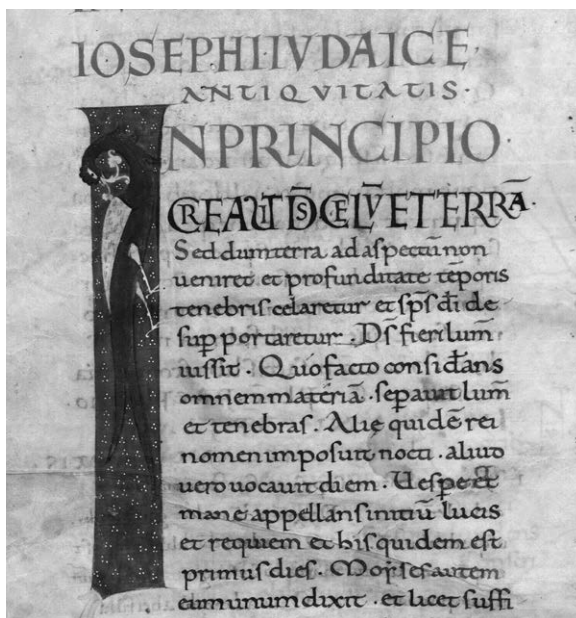 IOSEPHI·IVDAICE
ANTIQVITATIS·
IN PRINCIPIO·
CREAUIT D̄S CELV̄ ET TERRĀ·
Sed dum terra ad aspectum non
ueniret et profunditate tēporis
tenebris celaretur et sp̄s dī de
sup portaretur. Ds̄ fieri lum̄
iussit. Quo facto considerans
omnem materiā. separauit lum̄
et tenebras. Alie quidē rei
nomen imposuit nocti. aliut
uero uocauit diem. Uespere et
mane appellans initiū lucis
et requiem et his quidem est
primus dies. Moyses autem
eum unum dixit. et licet suffi